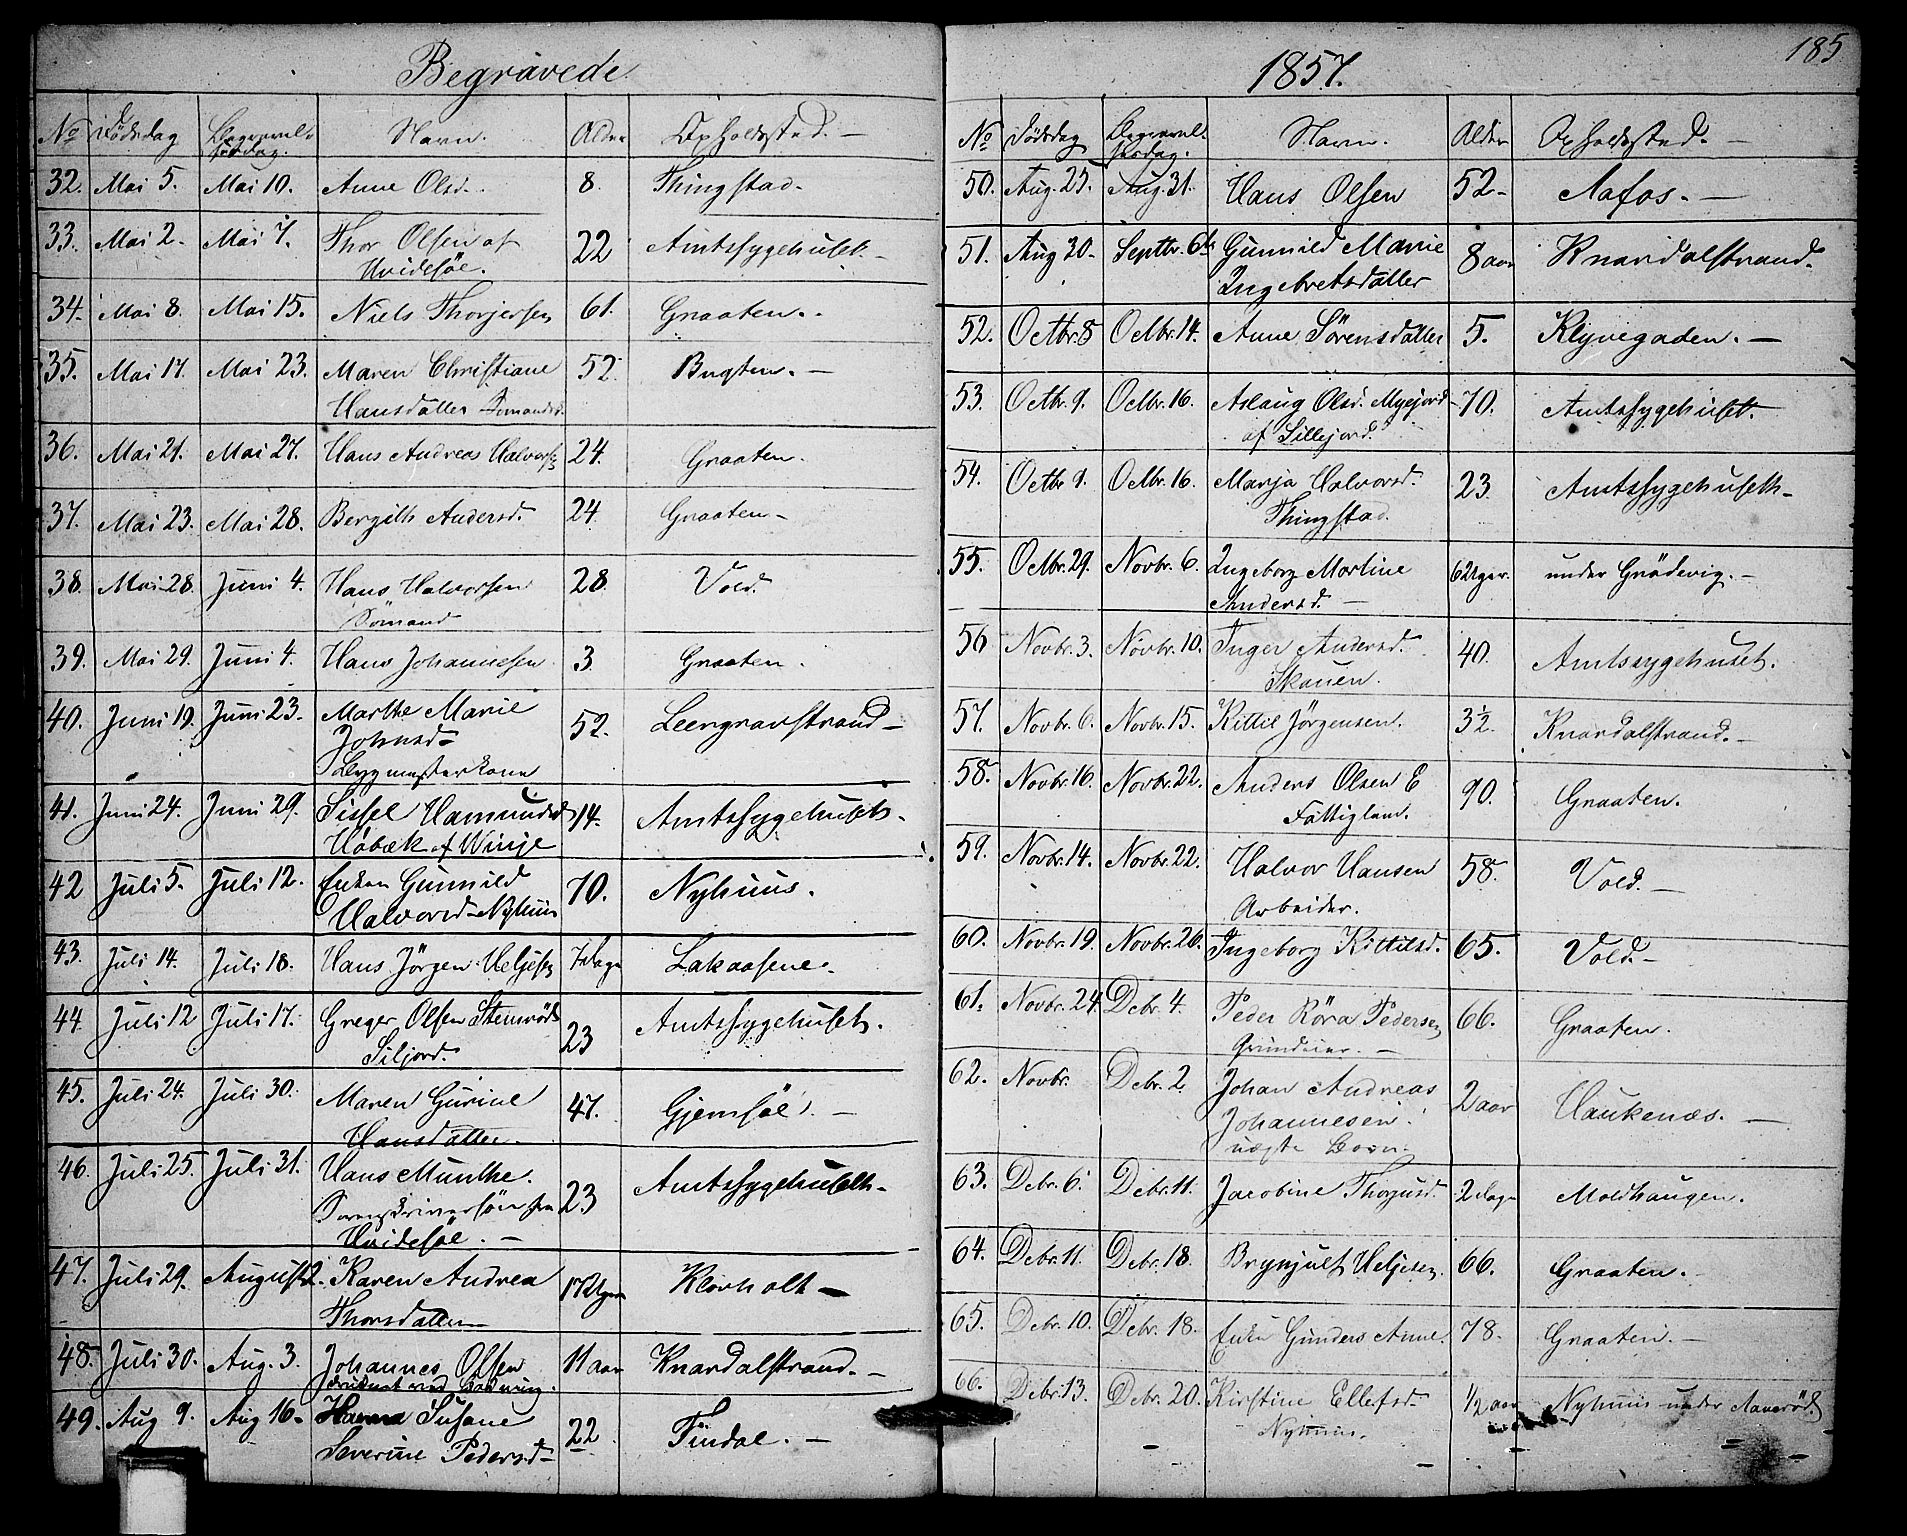 Begravede
No Dödsdag Begravel- Navn. Alder Opholdssted. —
sesdag.
32. Mai 5. Mai 10. Anne Olsd. 8. Thingstad.
33. Mai 2. Mai 7. Thor Olsen af 22 Amtssygehuset.
Hvidesöe.
34. Mai 8. Mai 15. Niels Thorjersen 61. Graaten.
35. Mai 17. Mai 23. Maren Christiane 52. Bugten. —
Hansdatter Sömandsd.
36. Mai 21. Mai 27. Hans Andreas Halvors. 24. Graaten.
37. Mai 23. Mai 28. Bergith Andersd. 24. Graaten —
38. Mai 28. Juni 4. Hans Halvorsen 28. Vold.
Sömand
39. Mai 29. Juni 4. Hans Johannesen. 3. Graaten.
40. Juni 19. Juni 23. Marthe Marie 52. Leengravstrand —
Johnsd.
Bygmesterkone
41. Juni 24. Juni 29. Sissel Hamundsd 14. Amtssygehuset.
Höbæk af Winje
42 Juli 5. Juli 12. Enken Gunnild 70. Nyhuus.
Halvorsd. Nyhuus
43. Juli 14. Juli 18. Hans Jörgen Heljes. 7 dage Lakaasene.
44. Juli 12 Juli 17. Greger Olsen 23 Amtssygehuset.
Siljord.
45. Juli 24. Juli 30. Maren Gurine 47. Gjemsöe. —
Hansdatter.
46. Juli 25. Juli 31. Hans Munthe. 23 Amtssygehuset.
Sorenskriversön fra
Hvidesöe. —
47. Juli 29. August 2. Karen Andrea 17 Uger Klovholt —
Thorsdatter
48. Juli 30. Aug. 3. Johannes Olsen 11 aar Knardalstrand. —
druknet ved Badning.
49. Aug 9. Aug 16. Hanna Susane 22 Findal. —
Severine Pedersd.
1857.
185
No Dödsdag Begravel- Navn. Alder Opholdssted. —
sesdag.
50. Aug. 25. Aug. 31. Hans Olsen 52 Aafos. —
51. Aug 30. Septbr. 6te Gunnild Marie 8 aar Knardalstrand.
Ingebretsdatter
52. Octbr. 8 Octbr. 14. Anne Sörensdatter 5. Klyvegaden. —
53. Octbr. 9. Octbr. 16. Aslaug Olsd. Myejord 70. Amtssygehuset.
af Sillejord.
54. Octbr 9. Octbr. 16. Marja Halvorsd. 23 Amtssygehuset.
Thingstad.
55. Octbr. 29. Novbr. 6. Ingeborg Martine 62 Uger. under Grödevig. —
Andersd. —
56 Novbr. 3. Novbr. 10. Inger Andersd. 40. Amtssygehuset.
Skauen.
57. Novbr. 6. Novbr. 15. Kittil Jörgensen. 3½ Knardalstrand. —
58. Novbr. 16. Novbr. 22. Anders Olsen E 90. Graaten.
Fattiglem.
59. Novbr. 14. Novbr. 22. Halvor Hansen 58. Vold. —
Arbeider.
60. Novbr. 19. Novbr. 26. Ingeborg Kittilsd. 65. Vold. —
61. Novbr. 24. Debr. 4. Peder Röra Pedersen 66. Graaten.
Grundeier. —
62. Novbr. Debr. 2 Johan Andreas 2 aar Haukenæs. —
Johannesen.
uægte Barn.
63. Debr. 6. Debr. 11. Jacobine Thorjusd. 2 dage Moldhaugen.
64. Debr. 11. Debr. 18. Brynjulf Heljesen 66. Graaten.
65. Debr. 10. Debr. 18. Enke Gunders Anne. 78. Graaten. —
66. Debr. 13. Debr. 20. Kirstine Ellefsd. ½ aar Nyhuus under Aaneröd
Nyhuus.